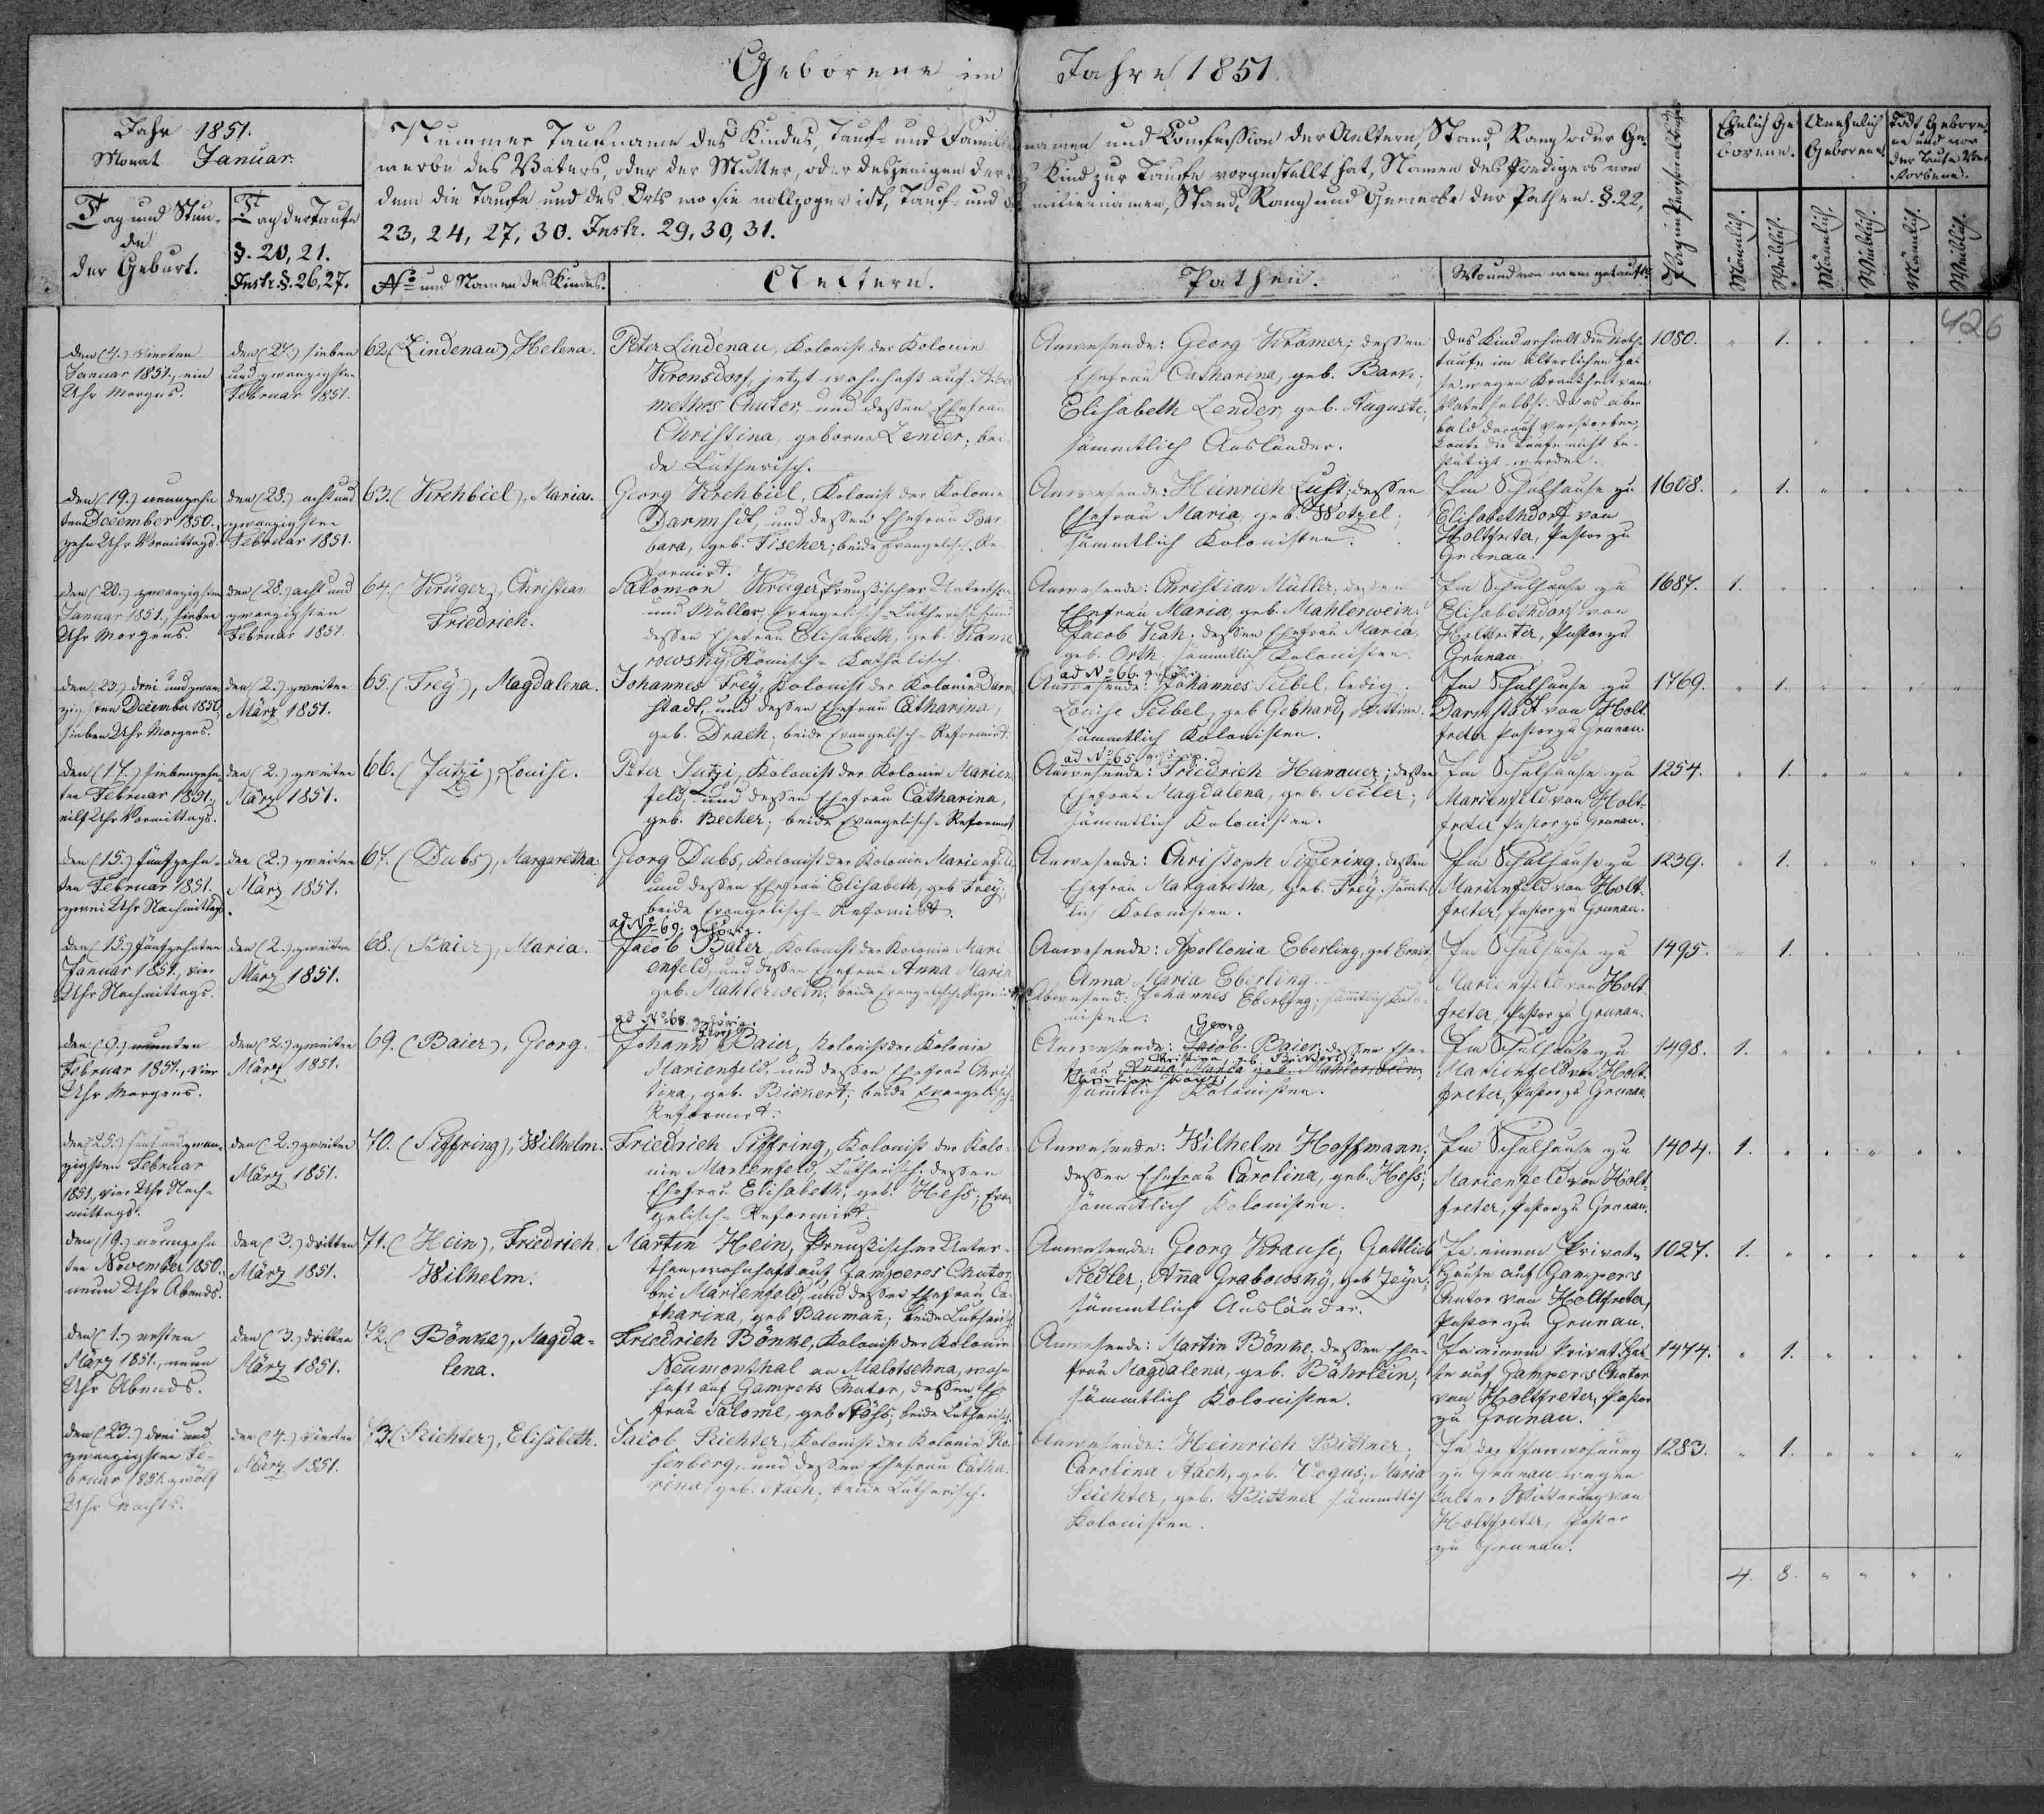 Geborene im Jahre 1851.
426
Jahr 1851.
Monat Januar.
Tag und Stun-
de
der Geburt.
Tag der Taufe
§. 20, 21.
Instr. §. 26, 27.
Nummer Taufname des Kindes, Tauf- und Familiennamen und Confession der Aeltern, Stand, Rang oder Ge-
werbe des Vaters, oder der Mutter, oder desjenigen der das Kind zur Taufe vorgestellt hat, Namen des Predigers von
dem die Taufe und des Orts wo sie vollzogen ist, Tauf- und Familiennamen, Stand, Rang und Gewerbe der Pathen. §. 22,
23, 24, 27, 30. Instr. 29, 30, 31.
No und Namen des Kindes.
Aeltern.
Pathen.
Wo und von wem getauft.
Ehelich Ge-
borene.
Unehelich
Geborene.
Todt Gebore-
ne und vor
der Taufe Ver-
storbene.
Männlich.
Weiblich.
Männlich.
Weiblich.
Männlich.
Weiblich.
den (4.) vierten
Januar 1851., ein
Uhr Morgens.
den (27.) sieben
und zwanzigsten
Februar 1851.
62. (Lindenau), Helena.
Peter Lindenau, Kolonist der Kolonie
Kronsdorf, jetzt wohnhaft auf
Chutor, und dessen Ehefrau
Christina, geborne Lender; bei-
de Lutherisch.
Anwesende: Georg Krämer; dessen
Ehefrau Catharina, geb. Bark;
Elisabeth Lender, geb. Auguste;
sämmtlich Ausländer.
Das Kind erhielt die Noth-
taufe im älterlichen Hau-
se wegen Krankheit vom
Vater selbst. Da es aber
bald darauf verstorben,
konnte die Taufe nicht be-
stätigt werden.
1080.
1.
den (19.) neunzehn
ten December 1850.,
zehn Uhr Vormittags.
den (28.) acht und
zwanzigsten
Februar 1851.
63. (Krehbiel), Maria.
Georg Krehbiel, Kolonist der Kolonie
Darmstdt, und dessen Ehefrau Bar-
bara, geb. Fischer; beide Evangelisch-Re-
formirt.
Anwesende: Heinrich Lust; dessen
Ehefrau Maria, geb. Wetzel;
sämmtlich Kolonisten.
Im Schulhause zu
Elisabethdorf von
Holtfreter, Pastor zu
Grunau.
1608.
1.
den (20.) zwanzigsten
Januar 1851., sieben
Uhr Morgens.
den (28.) acht und
zwanzigsten
Februar 1851.
64. (Krüger), Christian
Friedrich.
Salomon Krüger, Preußischer Unterthan
und Müller, Evangelisch-Lutherisch und
dessen Ehefrau Elisabeth, geb. Kame-
rowsky, Römisch-Katholisch.
Anwesende: Christian Müller; dessen
Ehefrau Maria, geb. Mahlerwein;
Jacob Kah; dessen Ehefrau Maria,
geb. Orth; sämmtlich Kolonisten.
Im Schulhause zu
Elisabethdorf von
Holtfreter, Pastor zu
Grunau.
1687.
1.
den (23.) drei und zwan-
zigsten December 1850.,
sieben Uhr Morgens.
den (2.) zweiten
März 1851.
65. (Frey), Magdalena.
Johannes Frey, Kolonist der Kolonie Darm-
stadt, und dessen Ehefrau Catharina,
geb. Drach; beide Evangelisch-Reformirt.
ad No 66. gehörig.
Anwesende: Johannes Seibel, ledig.
Louise Seibel, geb. Gebhard, Wittwe.
sämmtlich Kolonisten.
Im Schulhause zu
Darmstadt von Holt-
freter, Pastor zu Grunau.
1769.
1.
den (17.) siebenzehn-
ten Februar 1851.,
eilf Uhr Vormittags.
den (2.) zweiten
März 1851.
66. (Jutzi), Louise.
Peter Jutzi, Kolonist der Kolonie Marien-
feld, und dessen Ehefrau Catharina,
geb. Becker; beide Evangelisch-Reformirt.
ad No 65. gehörig.
Anwesende: Friedrich Hanauer; dessen
Ehefrau Magdalena, geb. Seiler;
sämmtlich Kolonisten.
Im Schulhause zu
Marienfeld von Holt-
freter, Pastor zu Grunau.
1254.
1.
den (15.) fünfzehn-
ten Februar 1851.,
zwei Uhr Nachmittags.
den (2.) zweiten
März 1851.
67. (Dubs), Margaretha.
Georg Dubs, Kolonist der Kolonie Marienfeld,
und dessen Ehefrau Elisabeth, geb. Frey;
beide Evangelisch-Reformirt.
Anwesende: Christoph Siffering; dessen
Ehefrau Margaretha, geb. Frey; sämmt-
lich Kolonisten.
Im Schulhause zu
Marienfeld von Holt-
freter, Pastor zu Grunau.
1239.
1.
den (15.) fünfzehnten
Januar 1851., vier
Uhr Nachmittags.
den (2.) zweiten
März 1851.
68. (Baier), Maria.
ad No 69. gehörig.
Jacob Baier, Kolonist der Kolonie Mari-
enfeld, und dessen Ehefrau Anna Maria
geb. Mahlerwein; beide Evangelisch-Reformirt.
Anwesende: Apollonia Eberling, geb.
Anna Maria Eberling.
Abwesend: Johannes Eberling; sämmtlich Kolo-
nisten.
Im Schulhause zu
Marienfeld von Holt-
freter, Pastor zu Grunau.
1495.
1.
den (9.) neunten
Februar 1851., vier
Uhr Morgens.
den (2.) zweiten
März 1851.
69. (Baier), Georg.
ad No 68. gehörig.
Johann Baier, Kolonist der Kolonie
Marienfeld, und dessen Ehefrau Chris-
tina, geb. Bickert; beide Evangelisch-
Reformirt.
Georg
Anwesende: Jacob Baier; dessen Ehe-
Christina, geb. Bickert;
frau Anna Maria geb. Mahlerwein;
sämmtlich Kolonisten.
Im Schulhause zu
Marienfeld von Holt-
freter, Pastor zu Grunau.
1498.
1.
den (25.) fünf und zwan-
zigsten Februar
1851., vier Uhr Nach-
mittags.
den (2.) zweiten
März 1851.
70. (Siffring), Wilhelm.
Friedrich Siffring, Kolonist der Kolo-
nie Marienfeld, Lutherisch; dessen
Ehefrau Elisabeth, geb. Heß; Evan-
gelisch-Reformirt.
Anwesende: Wilhelm Hoffmann;
dessen Ehefrau Carolina, geb. Heß;
sämmtlich Kolonisten.
Im Schulhause zu
Marienfeld von Holt-
freter, Pastor zu Grunau.
1404.
1.
den (19.) neunzehn
ten November 1850.,
neun Uhr Abends.
den (3.) dritten
März 1851.
71. (Hein), Friedrich
Wilhelm.
Martin Hein, Preußischer Unter-
than, wohnhaft auf Gampers Chutor
bei Marienfeld, und dessen Ehefrau Ca-
tharina, geb. Baumañ; beide Lutherisch.
Anwesende: Georg Krause; Gottlieb
Redler; Aña Grabowsky, geb.
sämmtlich Ausländer.
In einem Privat-
Hause auf Gampers
Chutor von Holtfreter,
Pastor zu Grunau.
1027.
1.
den (1.) ersten
März 1851., neun
Uhr Abends.
den (3.) dritten
März 1851.
72. (Bönke), Magda-
lena.
Friedrich Bönke, Kolonist der Kolonie
Neumonthal an Malotschna, wohn-
haft auf Gampers Chutor, dessen Ehe-
frau Salome, geb. Stöhs; beide Lutherisch.
Anwesende: Martin Bönke; dessen Ehe-
frau Magdalena, geb. Bährlein;
sämmtlich Kolonisten.
In einem Privat Hau-
se auf Gampers Chutor
von Holtfreter, Pastor
zu Grunau.
1474.
1.
den (23.) drei und
zwanzigsten Fe-
bruar 1851. zwölf
Uhr Nachts.
den (4.) vierten
März 1851.
73. (Richter), Elisabeth.
Jacob Richter, Kolonist der Kolonie Ro-
senberg, und dessen Ehefrau Catha-
rina, geb. Stach; beide Lutherisch.
Anwesende: Heinrich Bittner;
Carolina Stach, geb. Vogus; Maria
Richter, geb. Bittner sämmtlich
Kolonisten.
In der Pfarrwohnung
zu Grunau wegen
kalter Witterung von
Holtfreter, Pastor
zu Grunau.
1283.
1.
4. 8.